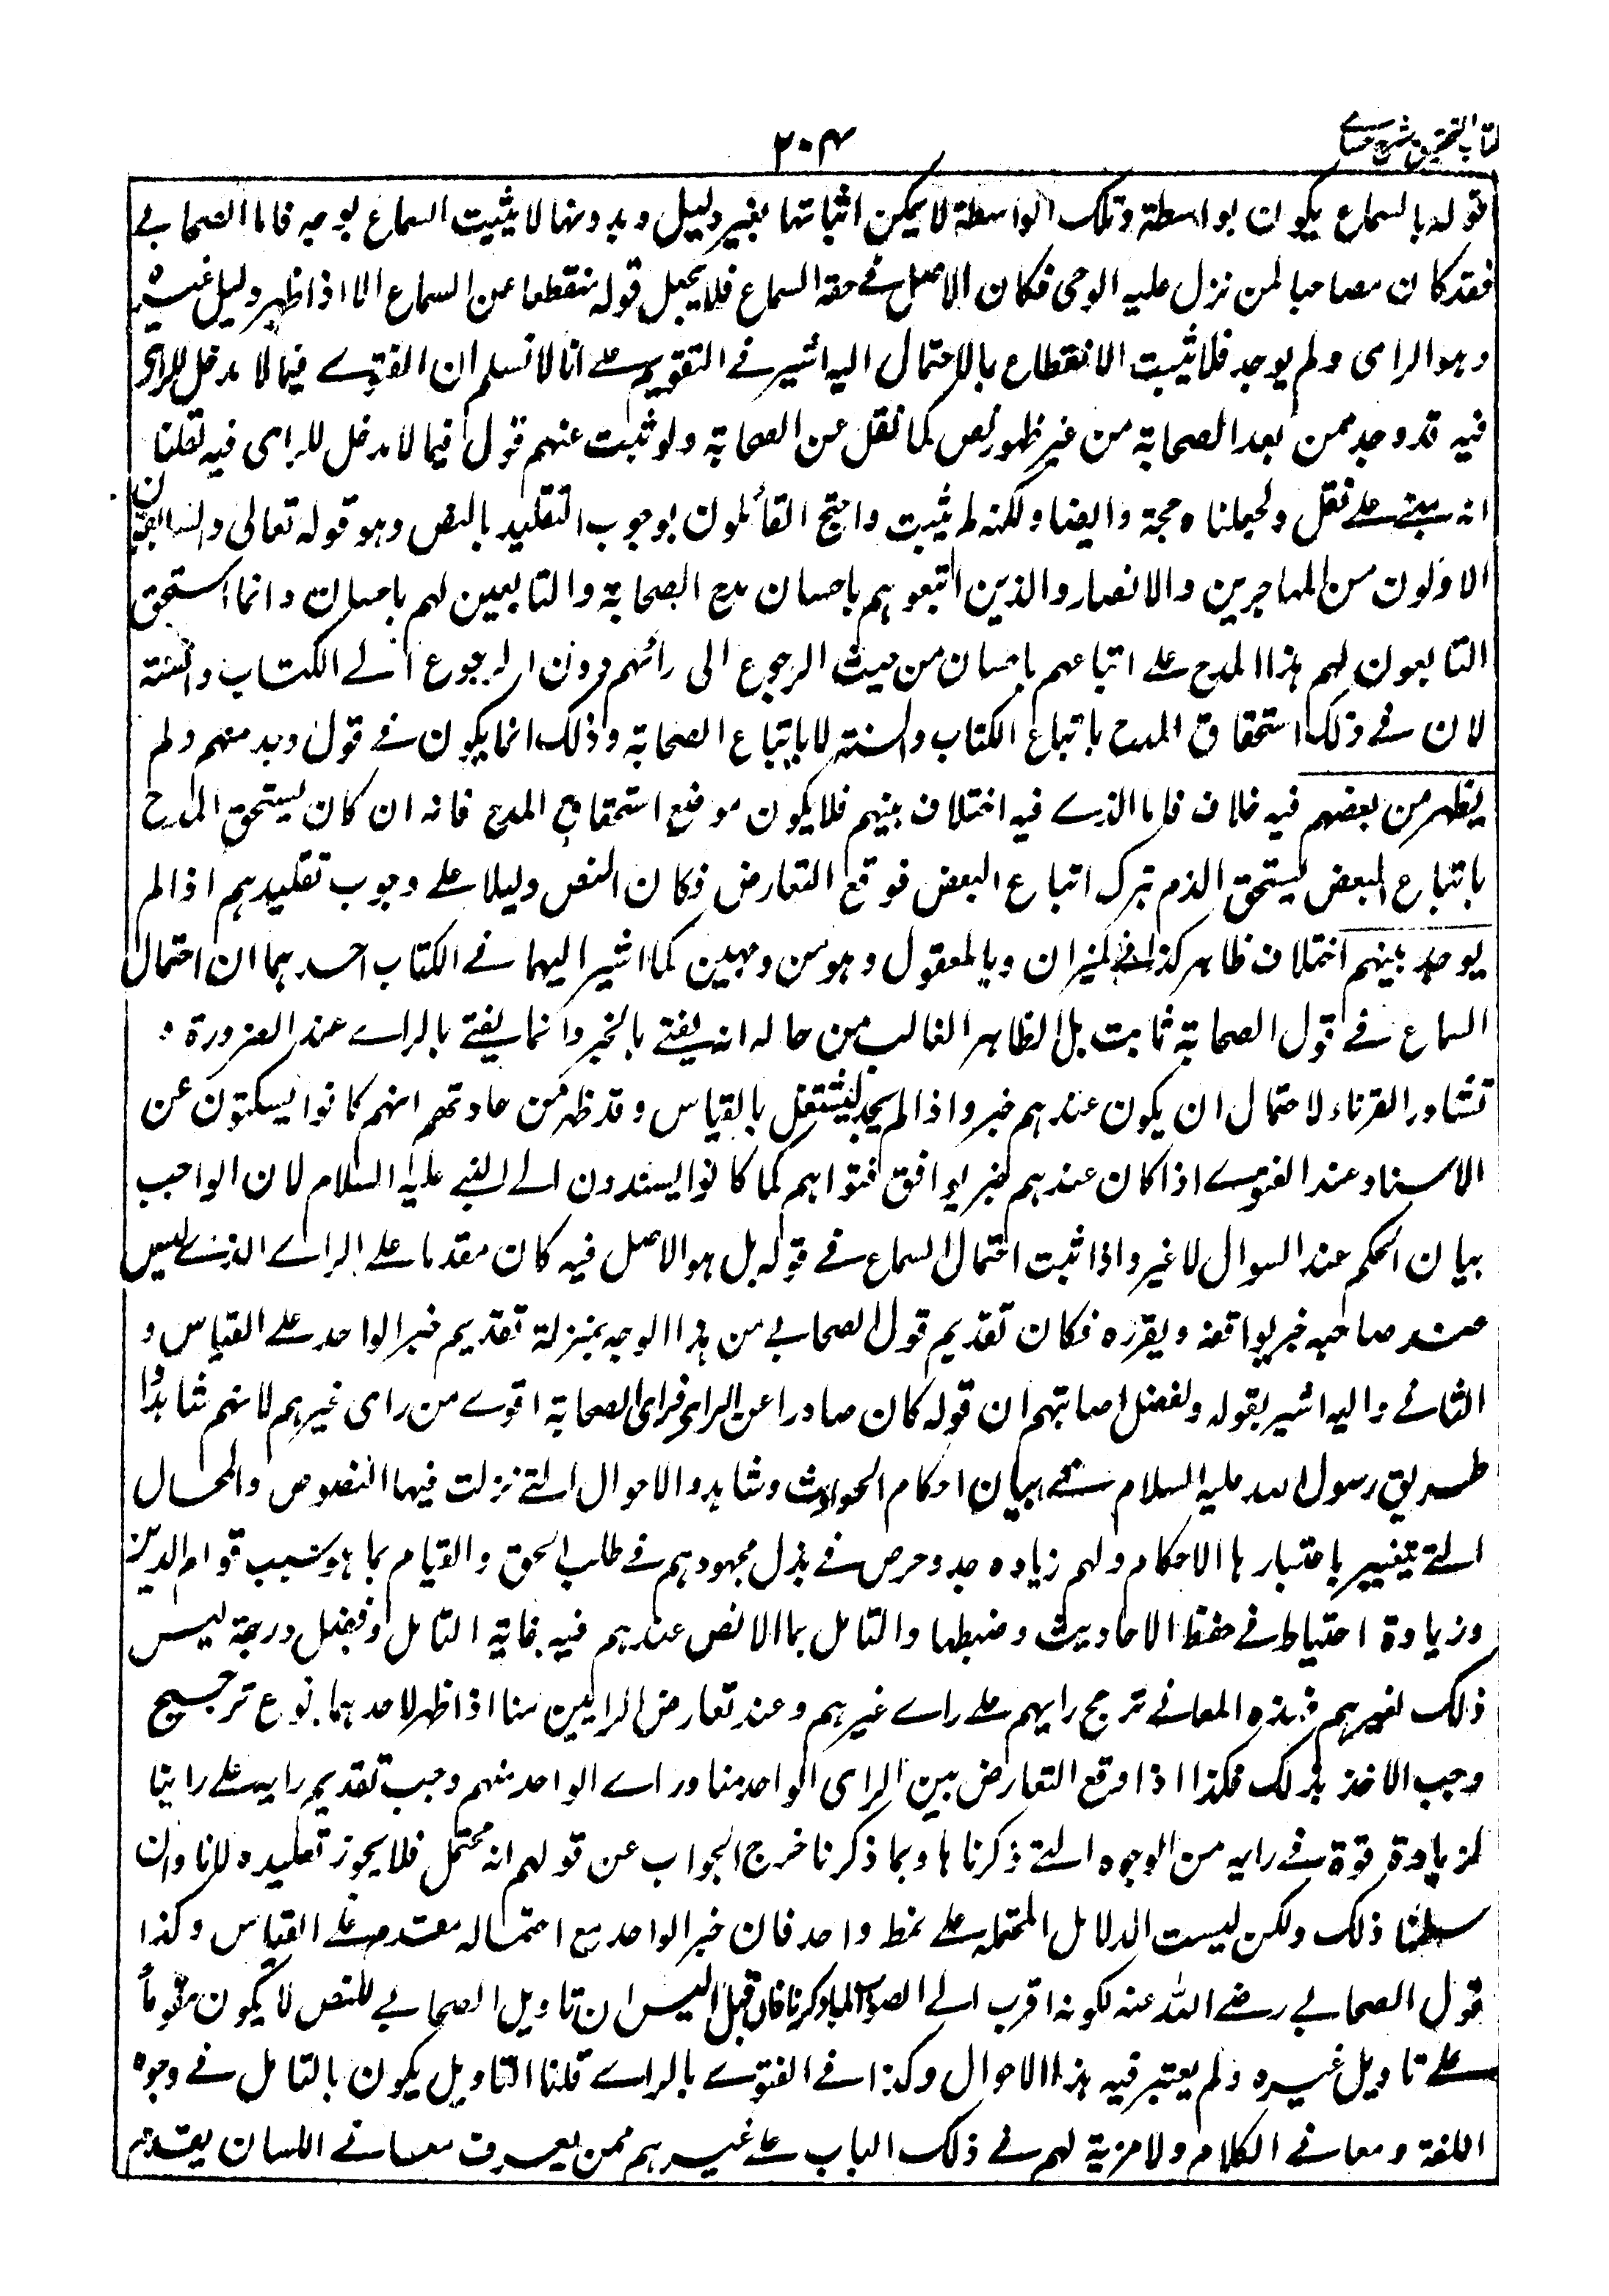 كتاب التحقيق شرح حسامى
٢٠٤
قوله بالسماع يكون بواسطة وتلك الواسطة لا يمكن اثباتها بغير دليل وبدونها لا يثبت السماع بوجه فاما الصحابى
فقد كان مصاحبا لمن نزل عليه الوحى فكان الاصل فى حقه السماع فلا يجعل قوله منقطعا عن السماع الا اذا ظهر دليل غيره
وهو الراى ولم يوجد فلا يثبت الانقطاع بالاحتمال اليه اشير فى التقويم على انا لا نسلم ان الفتوى فيما لا مدخل للراى
فيه قد وجد ممن بعد الصحابة من غير ظهور نص كما نقل عن الصحابة ولو ثبت عنهم قول فيما لا مدخل للراى فيه لقلنا
انه يبتنى على نقل ولجعلناه حجة وايضا ولكنه لم يثبت واحتج القائلون بوجوب التقليد بالنص وهو قوله تعالى والسابقون
الاولون من المهاجرين والانصار والذين اتبعوهم باحسان مدح الصحابة والتابعين لهم باحسان وانما استحق
التابعون لهم هذا المدح على اتباعهم باحسان من حيث الرجوع الى رائهم دون الرجوع الى الكتاب والسنة
لان فى ذلك استحقاق المدح باتباع الكتاب والسنة لا باتباع الصحابة وذلك انما يكون فى قول وجد منهم ولم
يظهر من بعضهم فيه خلاف فاما الذى فيه اختلاف بينهم فلا يكون موضع استحقاق المدح فانه ان كان يستحق المدح
باتباع البعض يستحق الذم بترك اتباع البعض فوقع التعارض فكان النص دليلا على وجوب تقليدهم اذا لم
يوجد بينهم اختلاف ظاهر كذا فى الميزان وبالمعقول وهو من وجهين كما اشير اليهما فى الكتاب احدهما ان احتمال
السماع فى قول الصحابة ثابت بل الظاهر الغالب من حاله انه يفتى بالخبر وانما يفتى بالراى عند الضرورة
تشاور القرناء لاحتمال ان يكون عندهم خبر واذا لم يجد ليشتغل بالقياس وقد ظهر من عادتهم انهم كانوا يسكتون عن
الاسناد عند الفتوى اذا كان عندهم خبر يوافق فتواهم كما كانوا يسندون الى النبى عليه السلام لان الواجب
بيان الحكم عند السوال لا غير واذا ثبت احتمال السماع فى قوله بل هو الاصل فيه كان مقدما على الراى الذى ليس
عند صاحبه خبر يوافقه ويقرره فكان تقديم قول الصحابى من هذا الوجه بمنزلة تقديم خبر الواحد على القياس و
الثانى واليه اشير بقوله ولفضل اصابتهم ان قوله كان صادرا عن الراى فراى الصحابة اقوى من راى غيرهم لانهم شاهدوا
طريق رسول الله عليه السلام فى بيان احكام الحوادث وشاهدوا الاحوال التى نزلت فيها النصوص والمحال
التى يتغير باعتبارها الاحكام ولهم زياده جد وحرص فى بذل مجهودهم فى طلب الحق والقيام بما هو سبب قوام الدين
وزيادة احتياط فى حفظ الاحاديث وضبطها والتامل بما لا نص عندهم فيه غاية التامل وفضل درجة ليس
ذلك لغيرهم فبهذه المعانى ترجح رايهم على راى غيرهم وعند تعارض الرايين منا اذا ظهر لاحدهما نوع ترجيح
وجب الاخذ بذلك فكذا اذا وقع التعارض بين الراى الواحد منا وراى الواحد منهم وجب تقديم رايه على راينا
لزيادة قوة فى رايه من الوجوه التى ذكرناها وبما ذكرنا خرج الجواب عن قولهم انه محتمل فلا يجوز تقليده لانا وان
سلمنا ذلك ولكن ليست الدلايل المحتملة على نمط واحد فان خبر الواحد مع احتماله مقدم على القياس وكذا
قول الصحابى رضى الله عنه لكونه اقرب الى الصواب لما ذكرنا فان قيل اليس ان تاويل الصحابى للنص لا يكون مقوما
على تاويل غيره ولم يعتبر فيه هذا الاحوال وكذا فى الفتوى بالراى قلنا التاويل يكون بالتامل فى وجوه
اللغة ومعانى الكلام ولا مزية لهم فى ذلك الباب على غيرهم ممن يعرف معانى اللسان يقدم